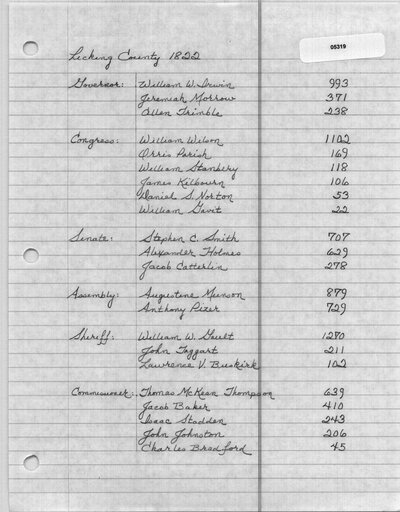 05319
Licking County 1822
Governor: William W. Irwin 993
Jeremiah Morrow 371
Allen Trimble 238
Congress: William Wilson 1102
Orris Parish 169
William Stanbery 118
James Kilbourn 106
Daniel S. Norton 53
William Gavit 22
Senate: Stephen C. Smith 707
Alexander Holmes 629
Jacob Catterlin 278
Assembly: Augustine Munson 879
Anthony Pizer 729
Sheriff: William W. Gault 1280
John Taggart 211
Lawrence V. Buskirk 102
Commissioner: Thomas McKean Thompson 639
Jacob Baker 410
Isaac Stadden 243
John Johnston 206
Charles Bradford 45